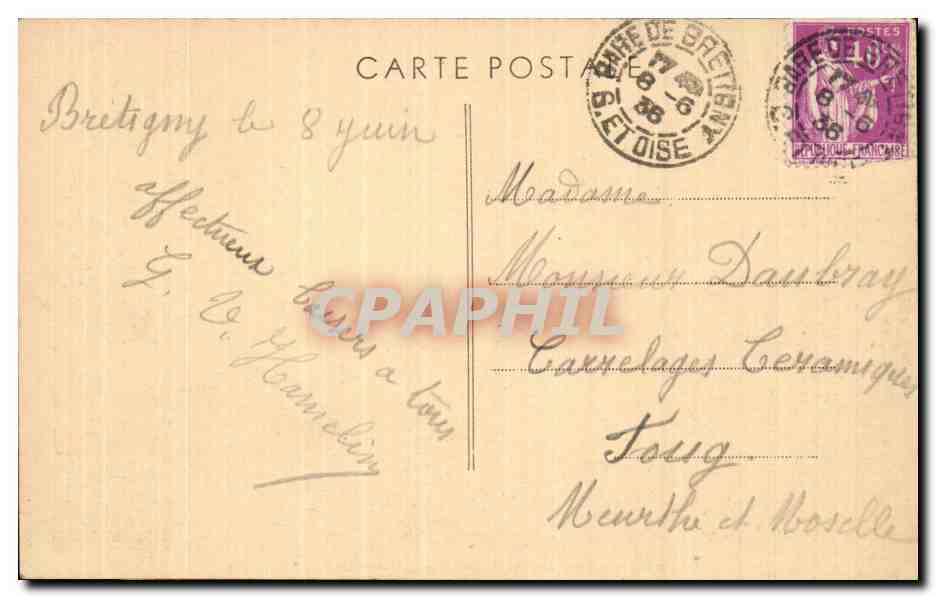 CARTE POSTALE
GARE DE BRETIGNY
17
8-6
36
S. ET OISE
POSTES
REPUBLIQUE FRANCAISE
Bretigny le 8 juin
affectueux baisers a tous
G. V. Hamelin
Madame
Monsieur Daubray
Carrelages Ceramiques
Foug
Meurthe et Moselle
CPAPHIL